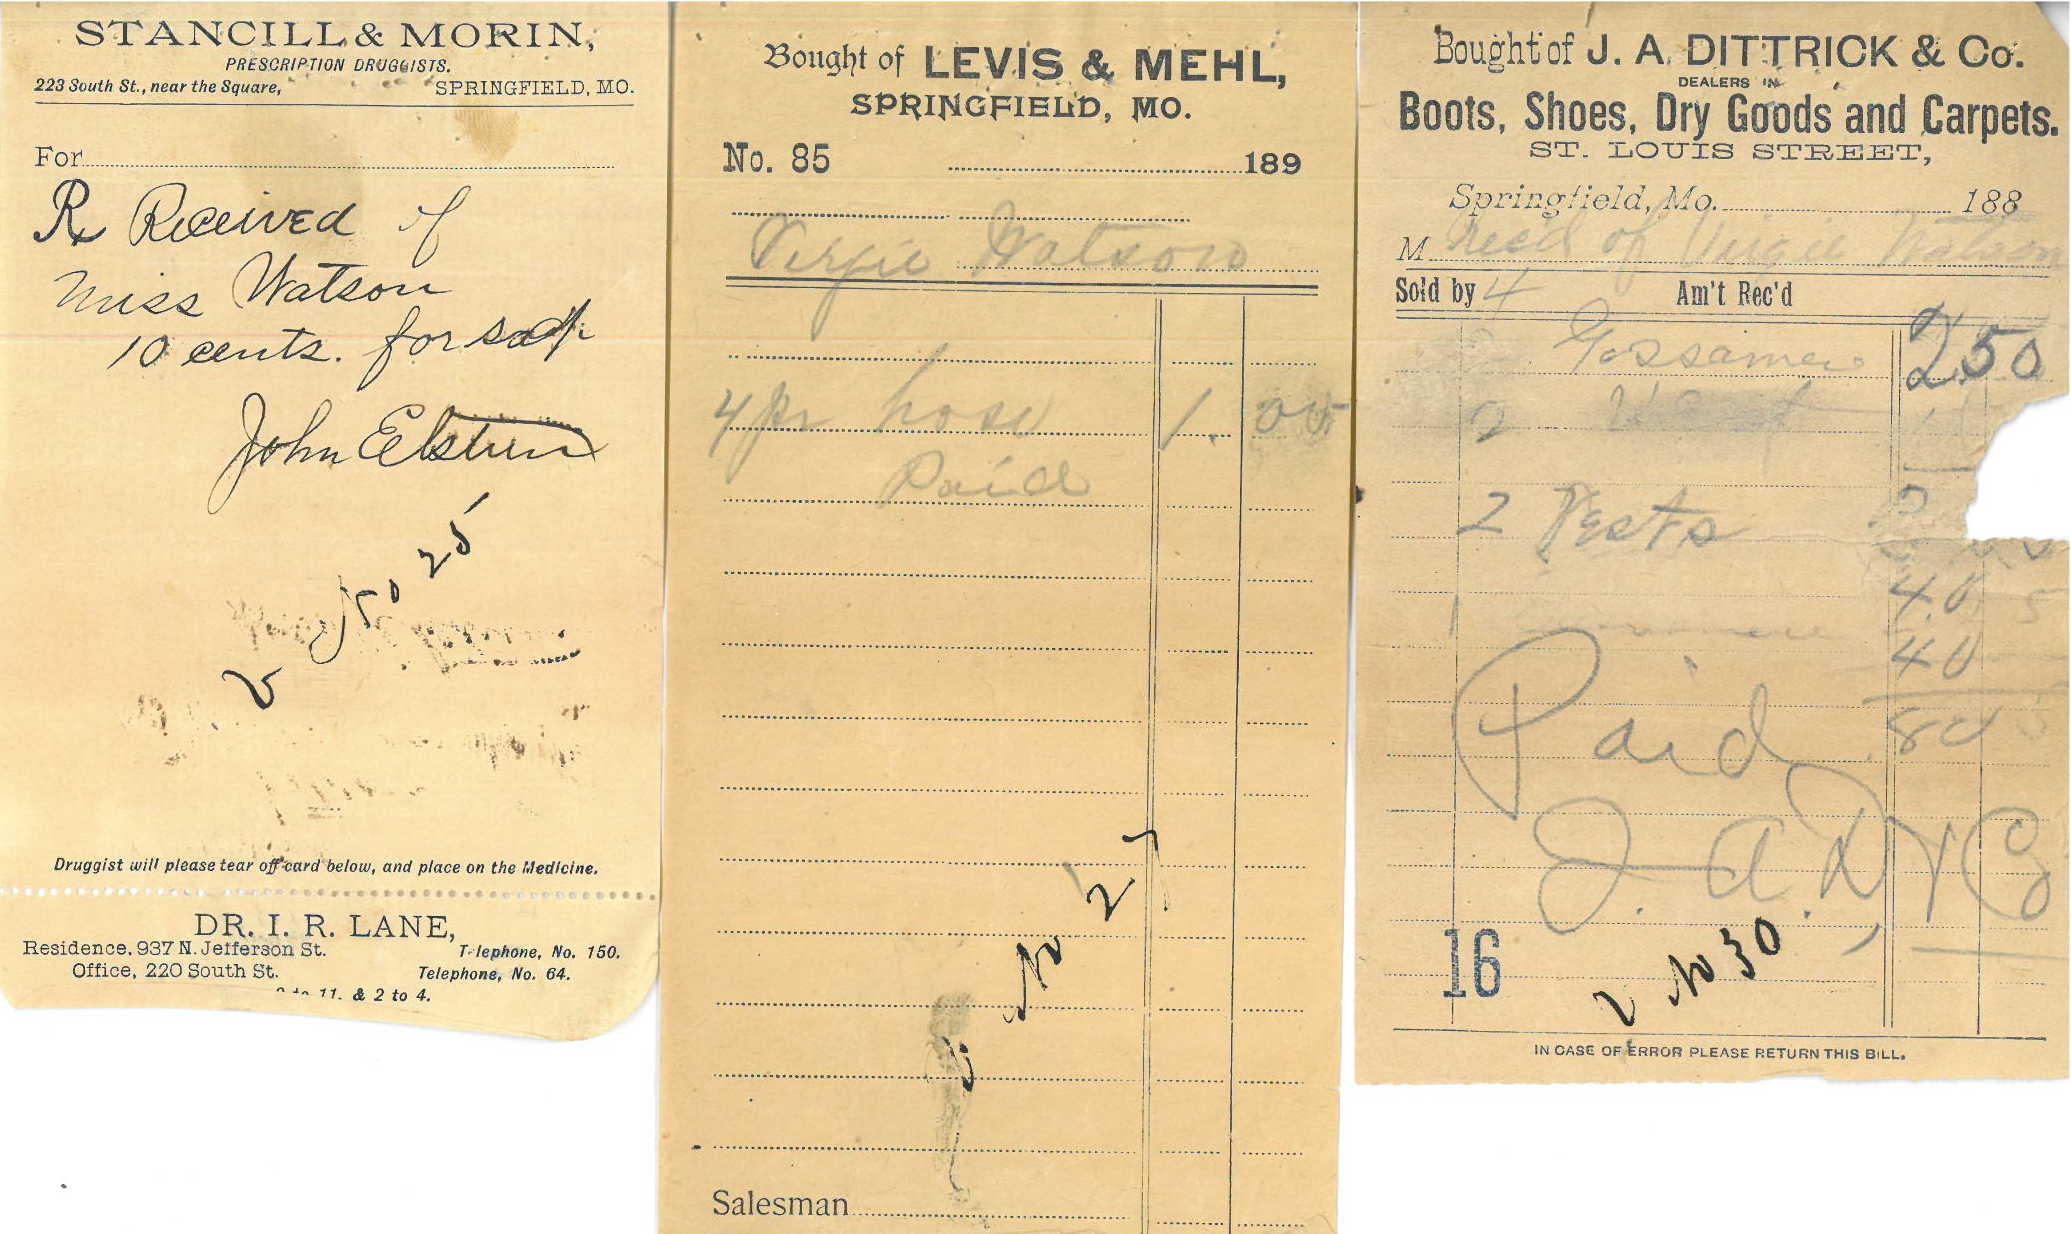 STANCILL & MORIN,
PRESCRIPTION DRUGGISTS.
223 South St., near the Square, SPRINGFIELD, MO.
For
Rx Received of
Miss Watson
10 cents. for
John
V No 25
Druggist will please tear off card below, and place on the Medicine.
DR. I. R. LANE,
Residence. 937 N. Jefferson St. Telephone, No. 150.
Office, 220 South St. Telephone, No. 64.
to 11. & 2 to 4.
Bought of LEVIS & MEHL,
SPRINGFIELD, MO.
No. 85 189
Virgie Watson
4 pr hose 1.00
Paid
No 27
Salesman
Bought of J. A. DITTRICK & Co.
DEALERS IN
Boots, Shoes, Dry Goods and Carpets.
ST. LOUIS STREET,
Springfield, Mo. 188
M Rec'd of Virgie Watson
Sold by 4 Am't Rec'd
Gossamer 2.50
2
2 Vests
40
40
80
Paid
J. A. D, & Co
16
V No 30
IN CASE OF ERROR PLEASE RETURN THIS BILL.